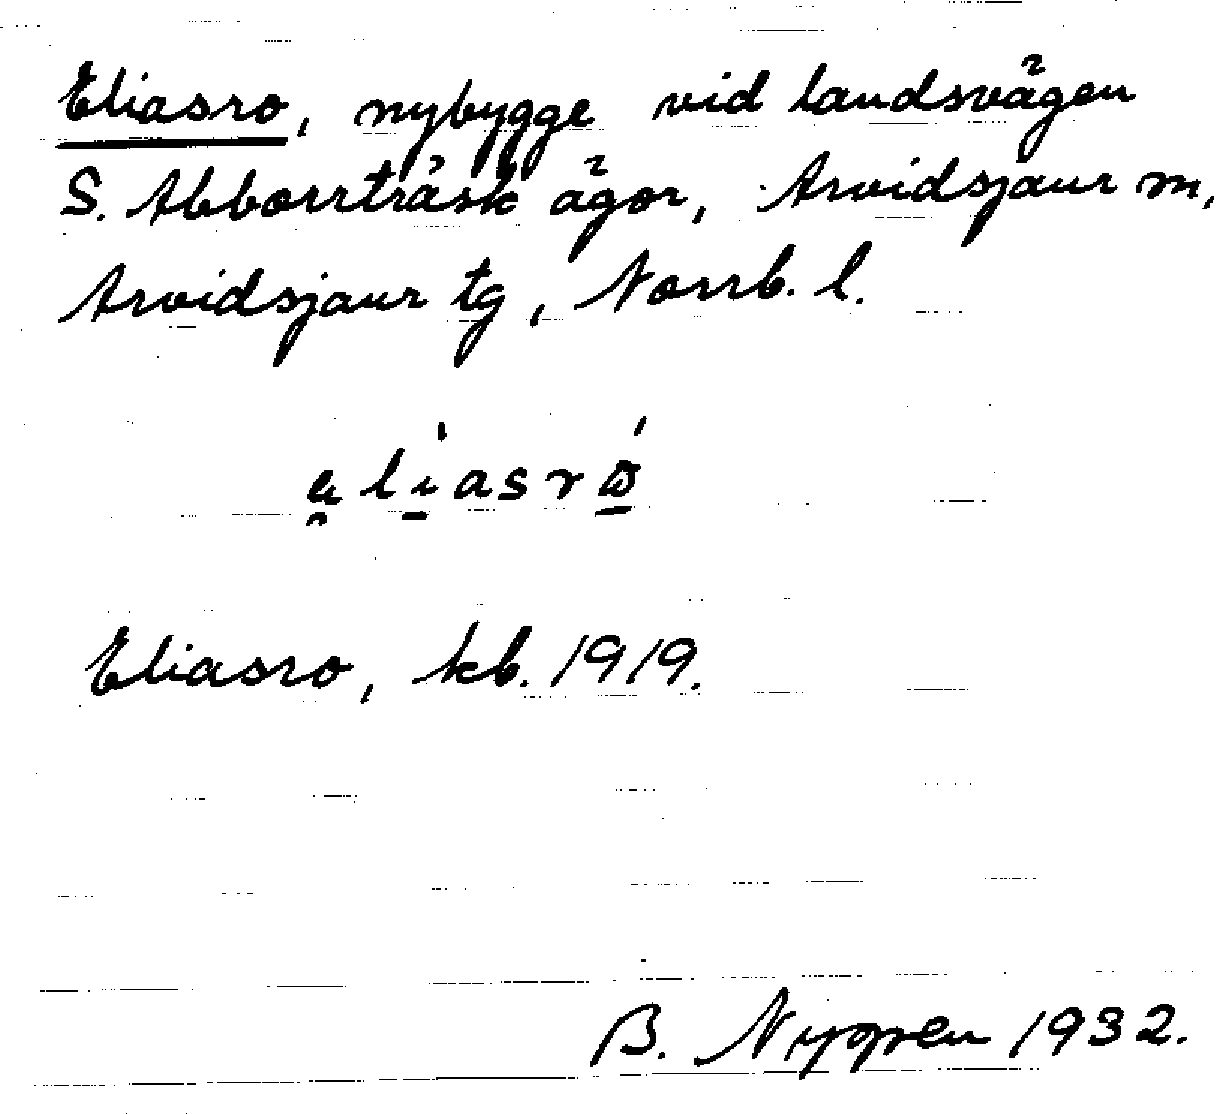 Eliasro, nybygge vid landsvägen
S. Abborrträsk ägor, Arvidsjaur sn,
Arvidsjaur tg, Norrb. l.
Eliasro, kb. 1919.
B. Nygren 1932.